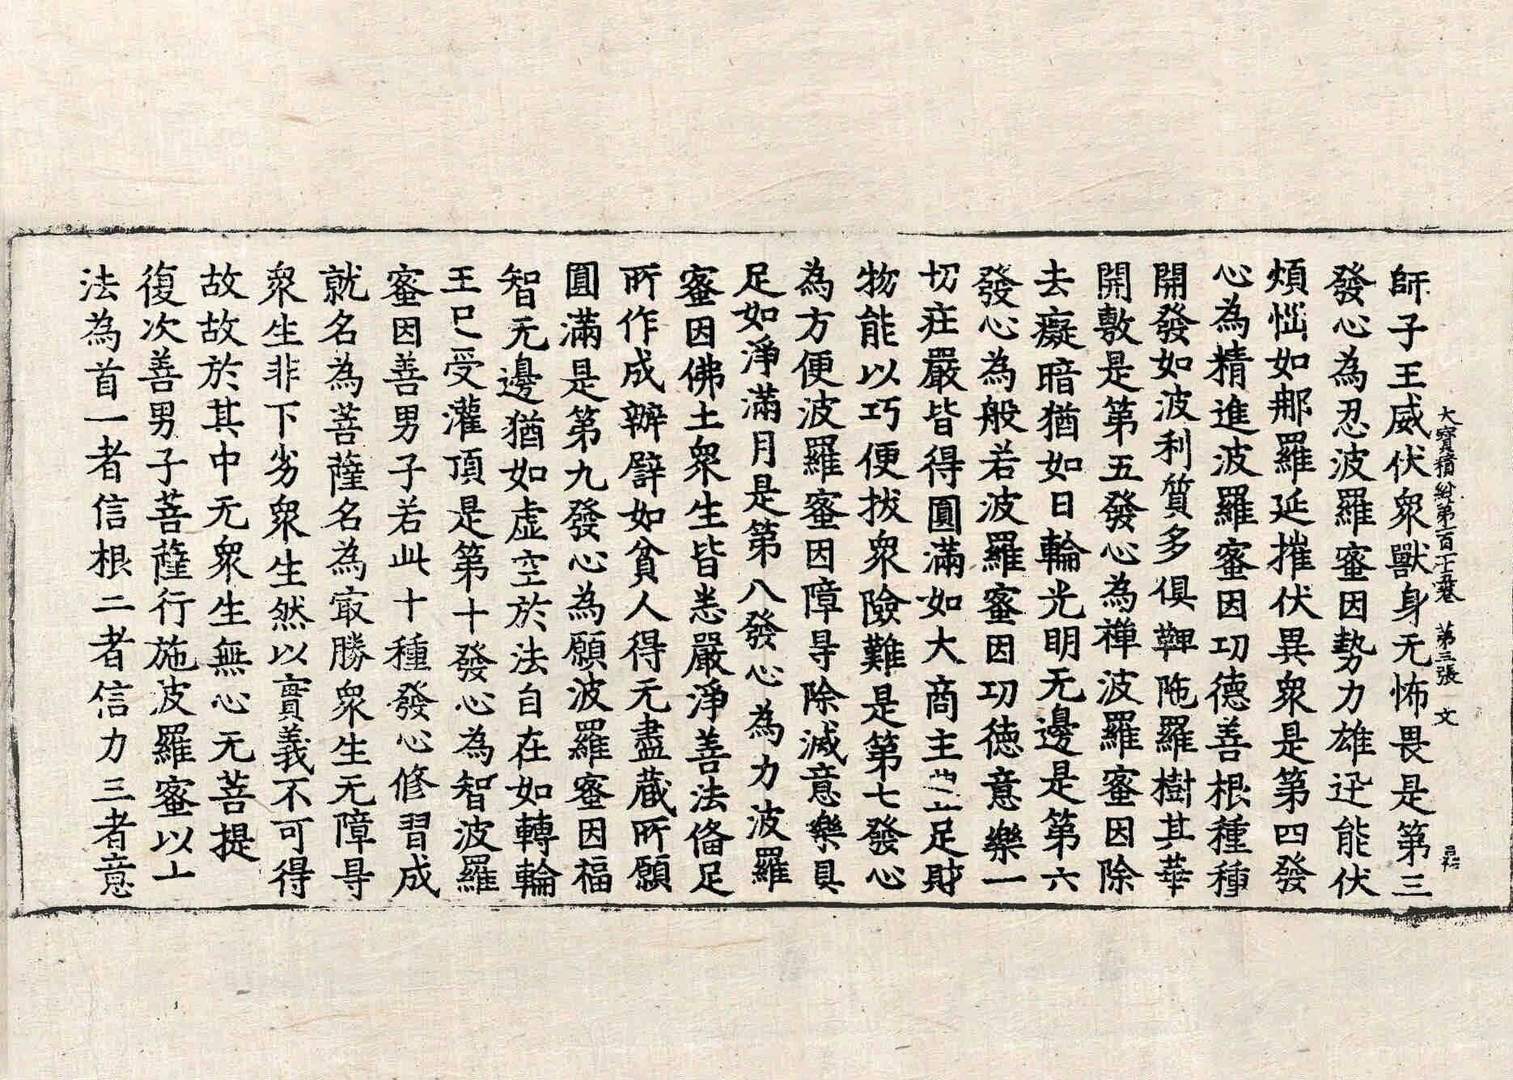 大寶積經第一百十五卷 第三張 文
師子王威伏衆獸身无怖畏是第三
發心為忍波羅蜜因勢力雄迅能伏
煩惱如那羅延摧伏異衆是第四發
心為精進波羅蜜因功德善根種種
開發如波利質多俱鞞陁羅樹其華
開敷是第五發心為禪波羅蜜因除
去癡暗猶如日輪光明无邊是第六
發心為般若波羅蜜因功德意樂一
切莊嚴皆得圓滿如大商主足財
物能以巧便拔衆險難是第七發心
為方便波羅蜜因障㝵除滅意樂具
足如淨滿月是第八發心為力波羅
蜜因佛土衆生皆悉嚴淨善法俻足
所作成辦譬如貧人得无盡藏所願
圓滿是第九發心為願波羅蜜因福
智无邊猶如虛空於法自在如轉輪
王已受灌頂是第十發心為智波羅
蜜因善男子若此十種發心修習成
就名為菩薩名為㝡勝衆生无障㝵
衆生非下劣衆生然以實義不可得
故故於其中无衆生無心无菩提
復次善男子菩薩行施波羅蜜以十
法為首一者信根二者信力三者意